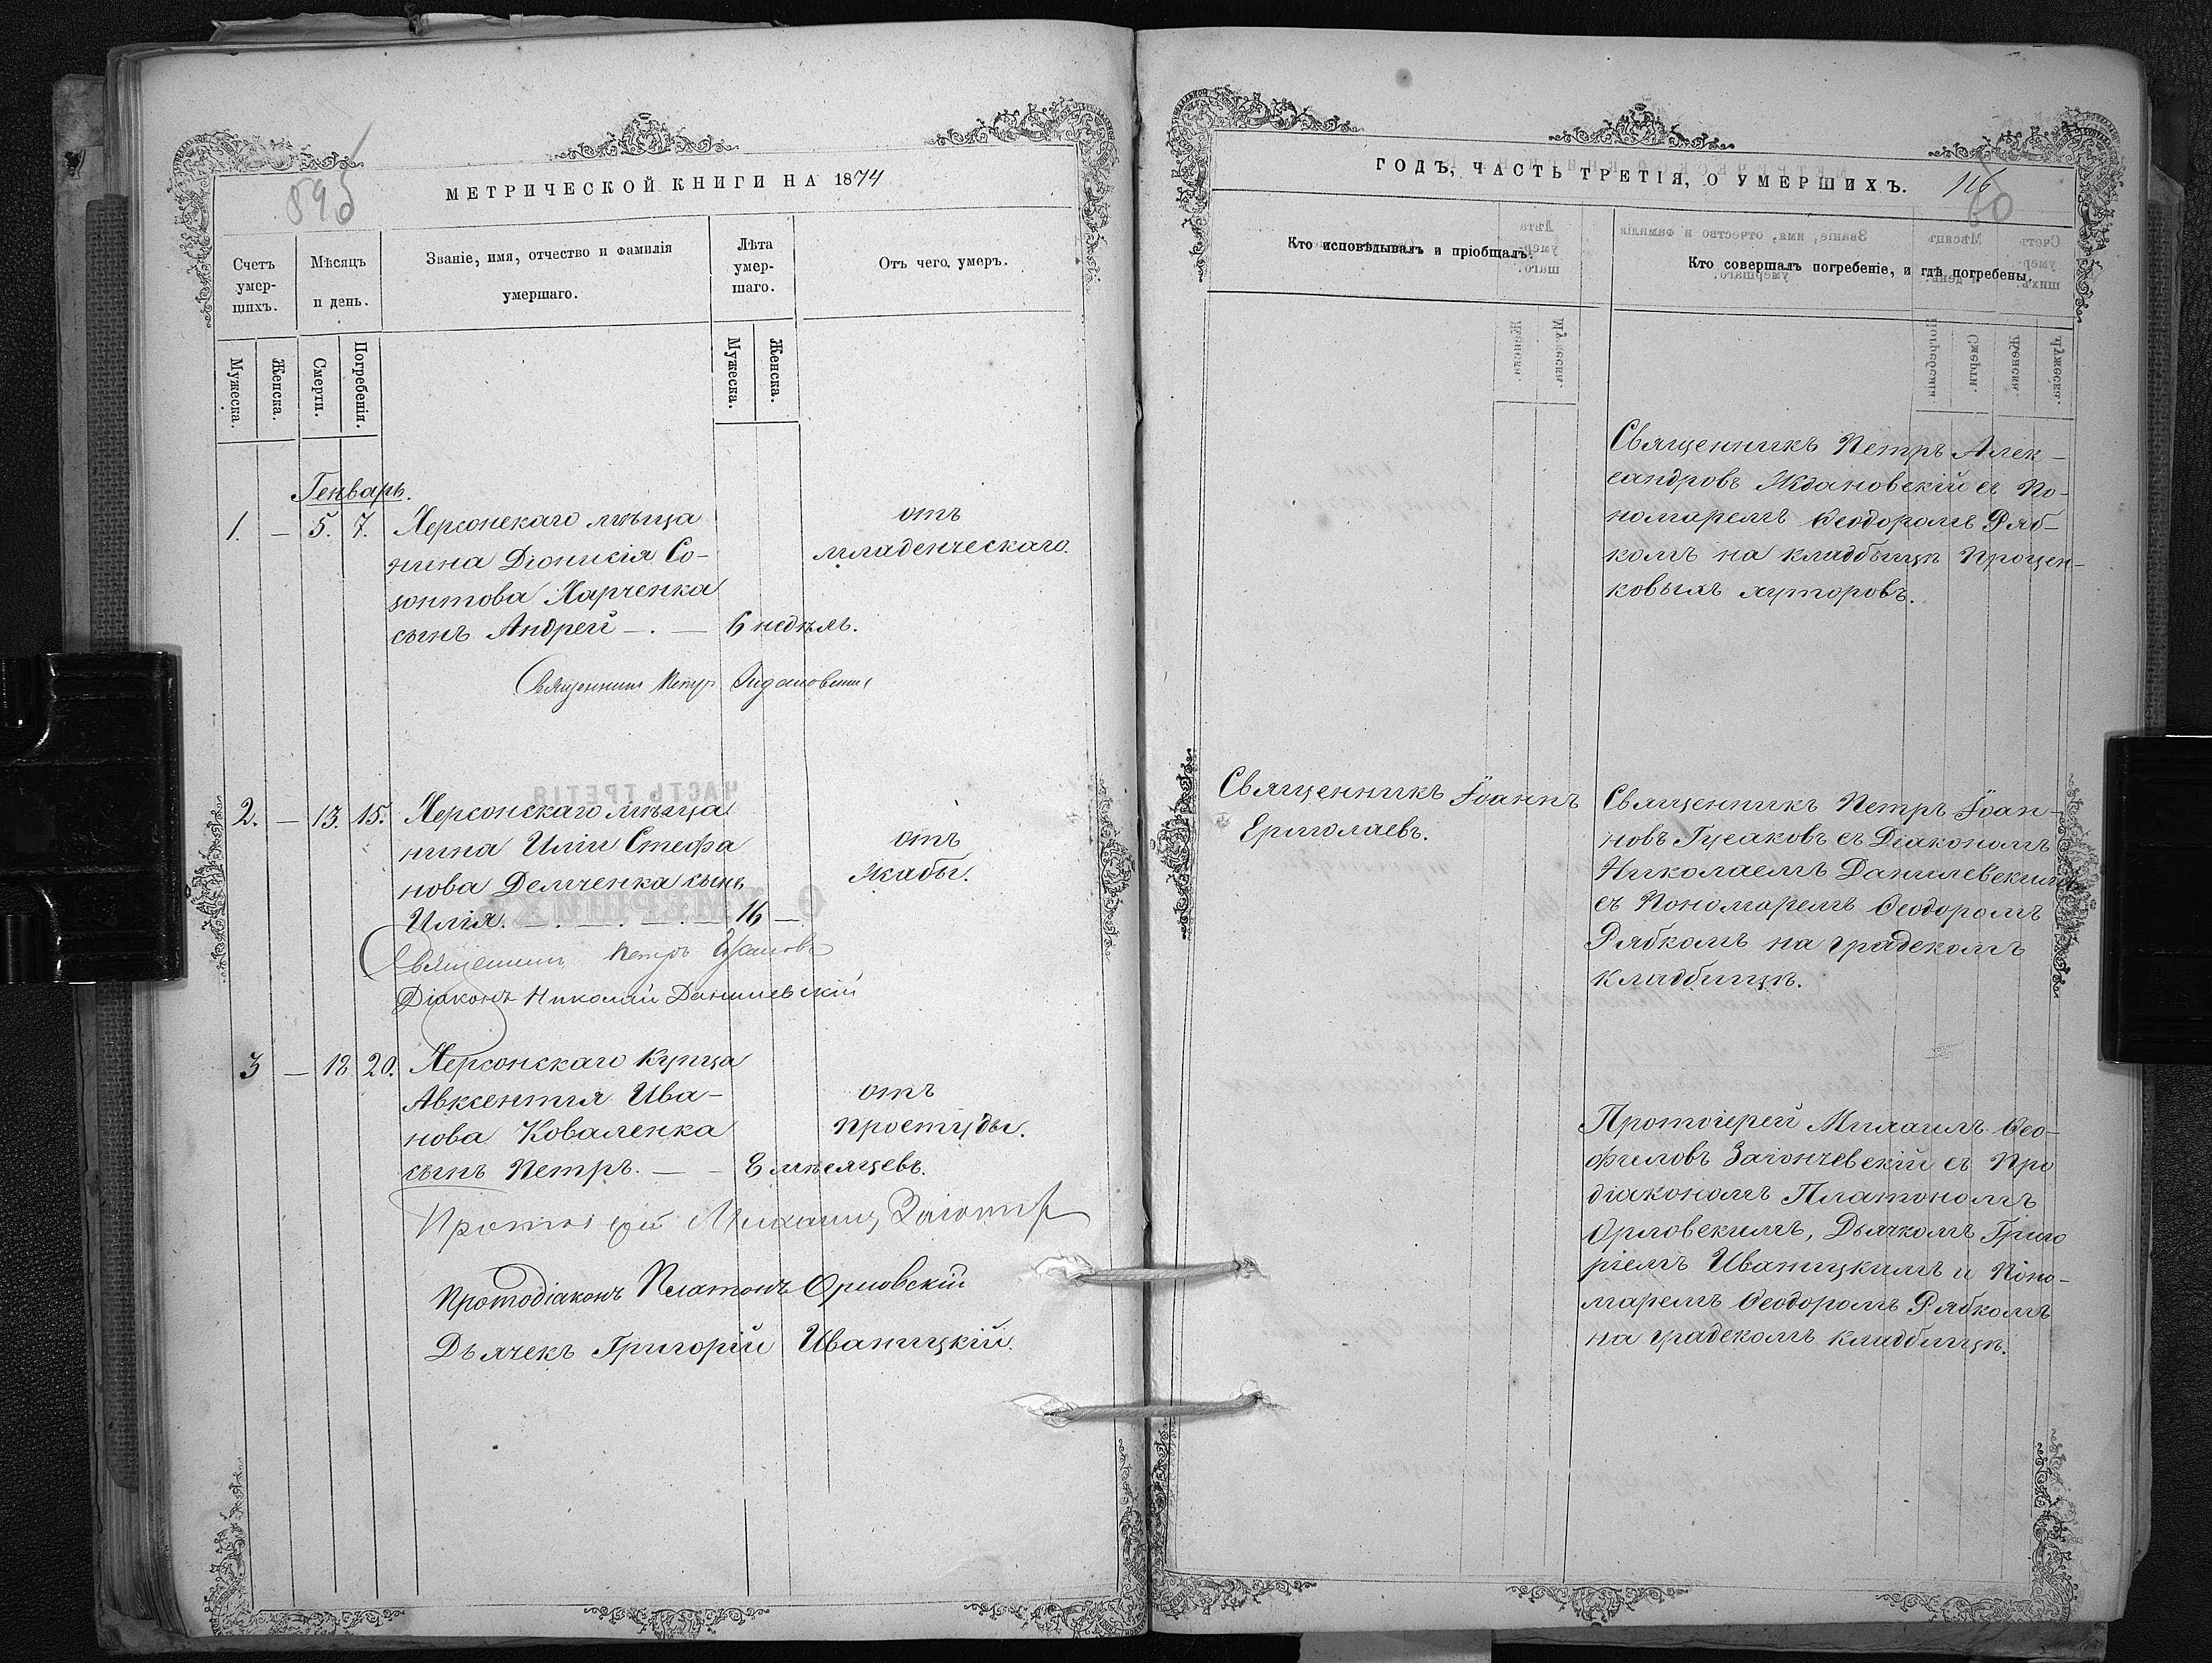 895
МЕТРИЧЕСКОЙ КНИГИ НА 1874
Счетъ умер-шихъ.
Мѣсяцъ и день.
Званіе, имя, отчество и фамилія умершаго.
Лѣта умер-шаго.
Отъ чего умеръ.
Мужеска.
Женска.
Смерти.
Погребенія.
Мужеска.
Женска.
Генварь.
1. — 5. 7. Херсонскаго мѣща
нина Діонисія Со-
зонтова Харченка
сынъ Андрей —.— 6 недѣль.
отъ
младенческаго.
Священникъ Петръ Ждановскій
2. — 13. 15. Херсонскаго мѣща
нина Иліи Стефа
нова Демченка сынъ
Илія. —.—.—.— 16 —
отъ
жабы.
Священникъ Петръ Гусаковъ
Діаконъ Николай Данилевскій
3 — 18 20. Херсонскаго купца
Авксентія Ива-
нова Коваленка
сынъ Петръ. — — 8 мѣсяцевъ.
отъ
простуды.
Протоіерей Михаилъ
Протодіаконъ Платонъ Орловскій
Дьячекъ Григорій Иваницкій.
ГОДЪ, ЧАСТЬ ТРЕТІЯ, О УМЕРШИХЪ.
116
60
Кто исповѣдывалъ и пріобщалъ.
Кто совершалъ погребеніе, и гдѣ погребены.
Священникъ Петръ Алек-
сандровъ Ждановскій съ По-
номаремъ Ѳеодоромъ Ряб-
комъ на кладбищѣ Процен-
ковыхъ хуторовъ.
Священникъ Іоаннъ
Ермолаевъ.
Священникъ Петръ Іоан-
новъ Гусаковъ съ Діакономъ
Николаемъ Данилевскимъ
съ Пономаремъ Ѳеодоромъ
Рябкомъ на градскомъ
кладбищѣ.
Протоіерей Михаилъ Ѳео-
филовъ Загончевскій съ Про
діакономъ Платономъ
Орловскимъ, Дьячкомъ Григо
ріемъ Иваницкимъ и Поно-
маремъ Ѳеодоромъ Рябкомъ
на градскомъ кладбищѣ.